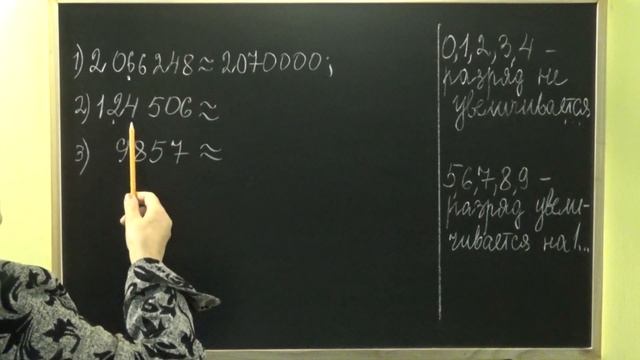 1) 2 066 248 ≈ 2070000;
2) 124 506 ≈
3) 9857 ≈
0,1,2,3,4 –
разряд не
увеличивается
5 6,7,8,9 –
разряд увели-
чивается на 1..